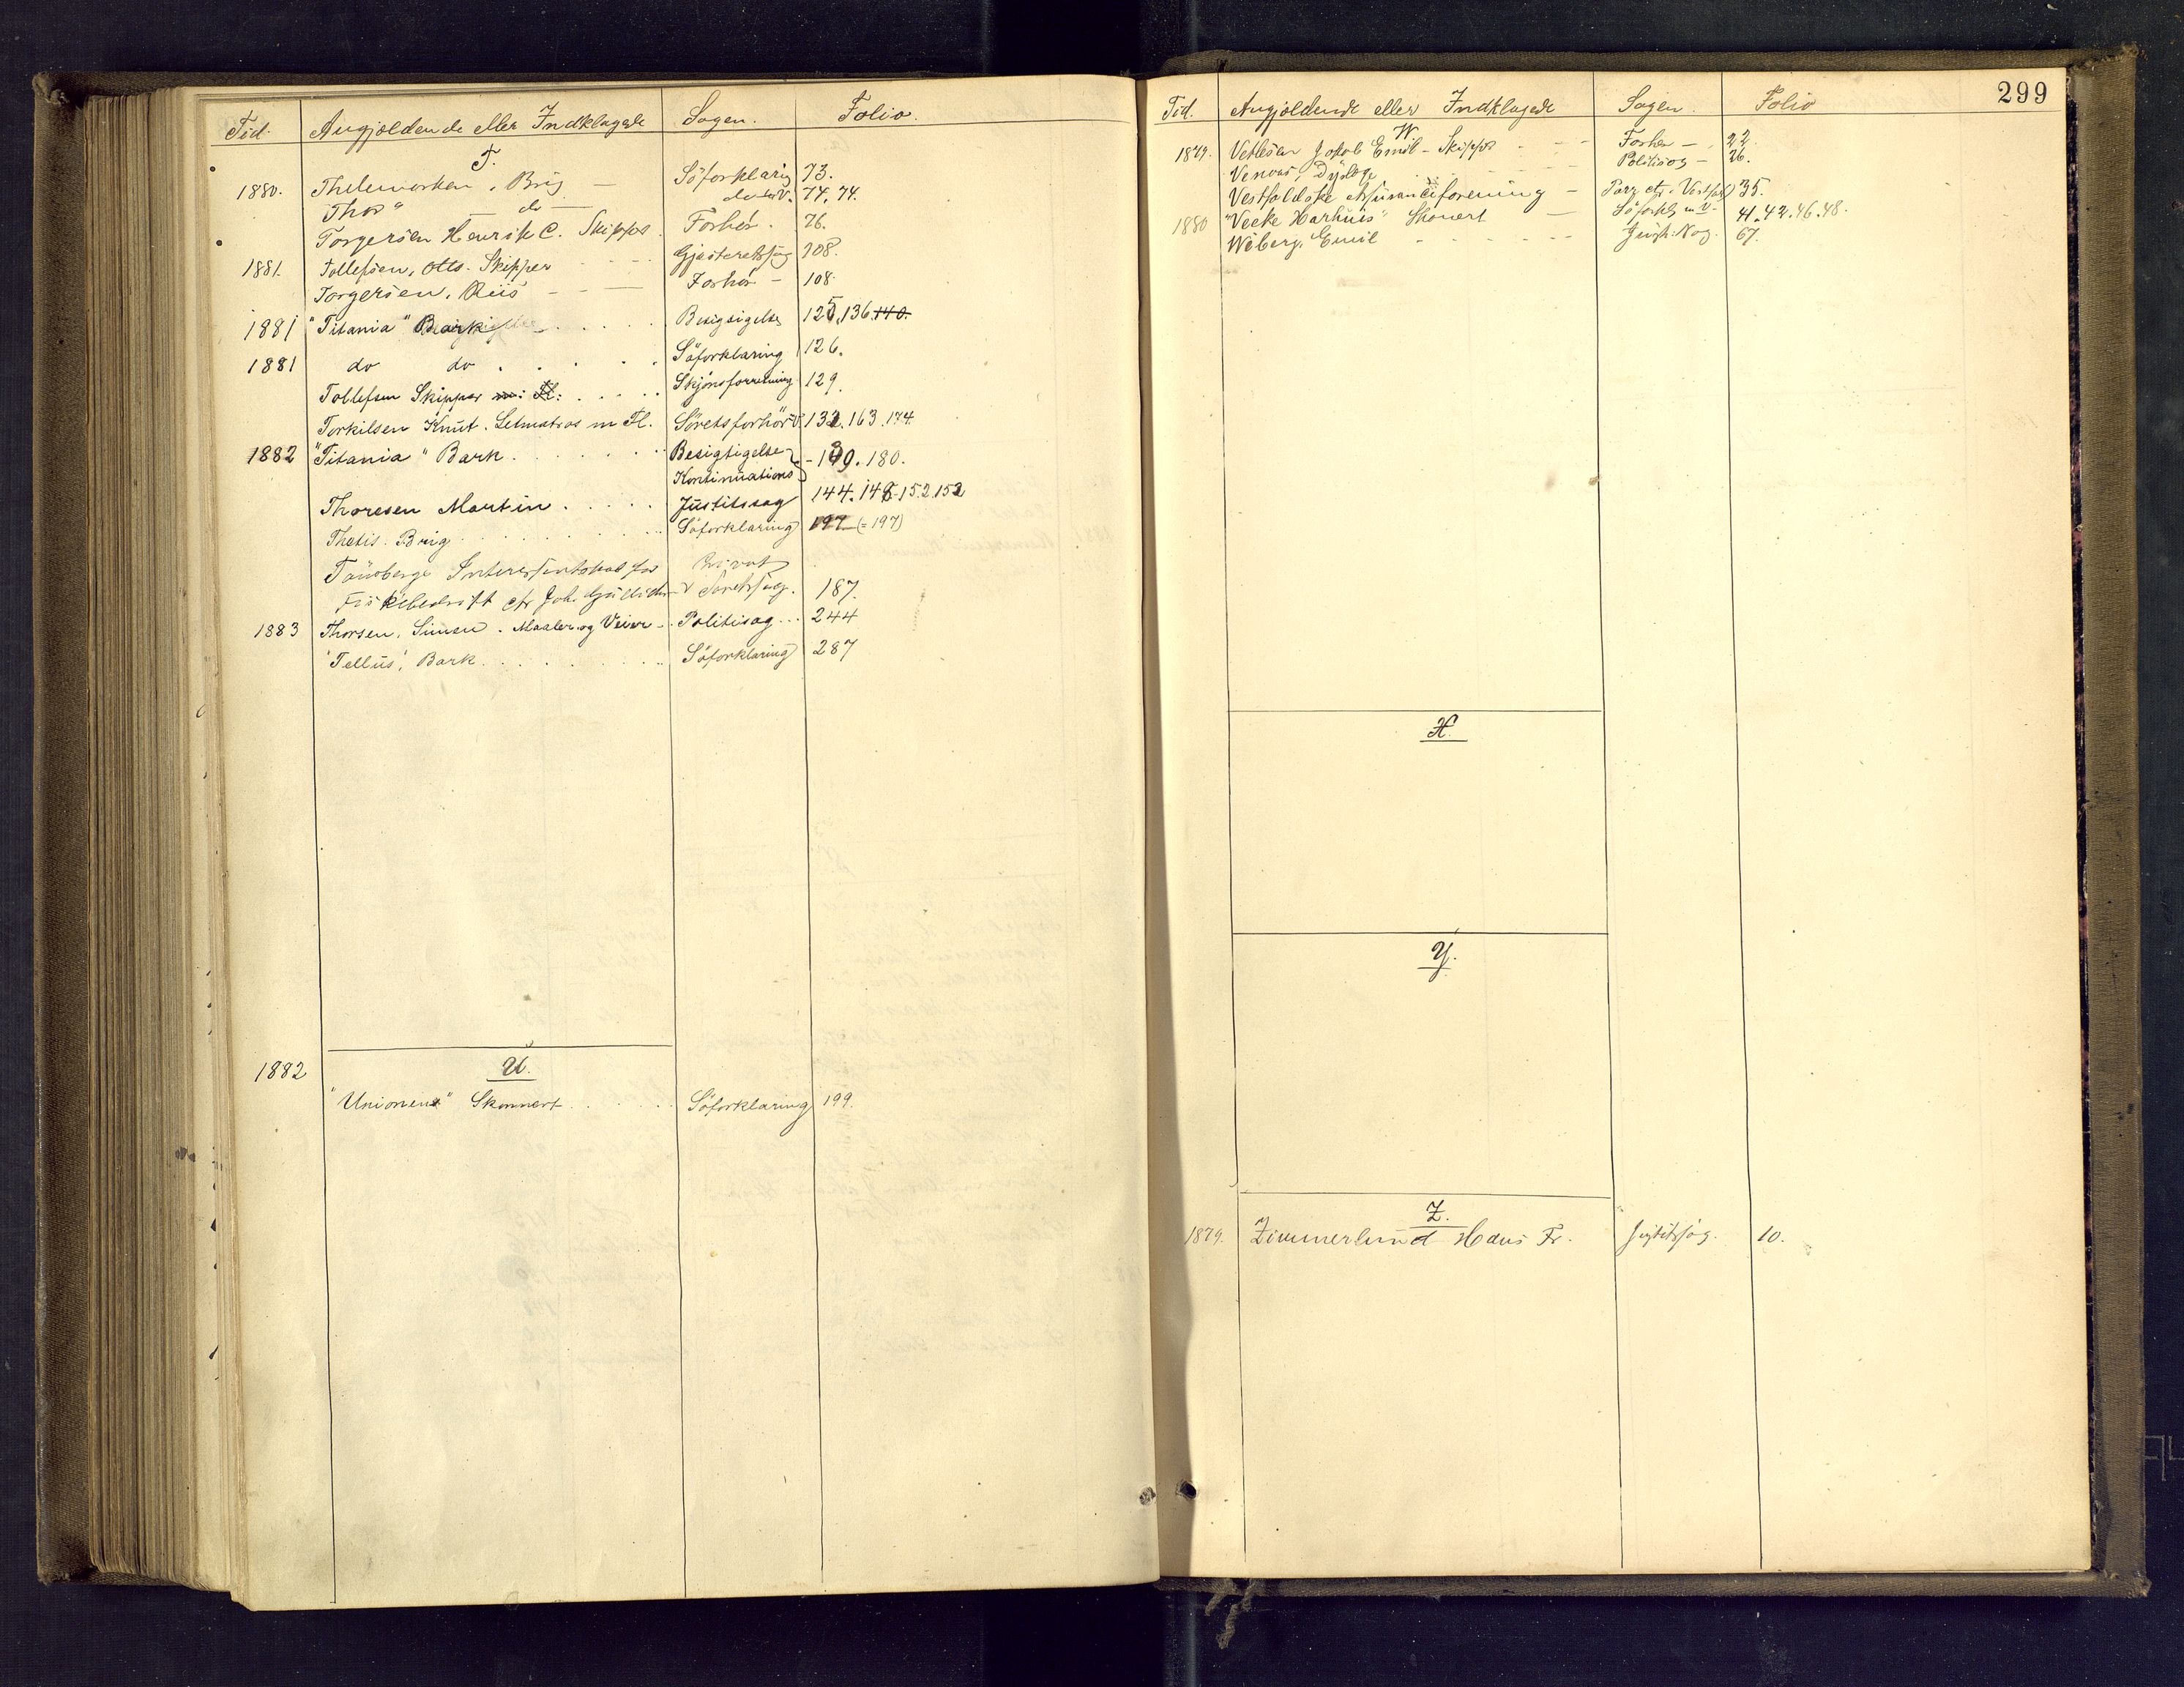 Tid. Angjældende eller Indklagede Sagen. Folio.
T.
1880. Thelemarken, Brig — Söforklaring 73.
Thor" — do — do V. 74. 74.
Torgersen Henrik C. Skipper. Forhör. 76.
1881. Tollefsen, Otto. Skipper Gjesteretssag 108.
Torgersen, Riis — Forhör — 108.
1881 "Titania" Bark Besigtigelse 125, 136. 140.
1881 do do Söforklaring 126.
Tollefsen Skipper m: Fl: Skjönsforretning 129.
Torkilsen Knut. Letmatros m Fl. Söretsforhör 132. 163. 174.
1882 "Titania" Bark Besigtigelse - 139. 180.
Kontinuations
Thoresen Martin Justitssag 144. 148. 152. 152
Thetis. Brig Söforklaring 197 (= 197)
Tönsbergs Interessentskab for Privat
Fiskebedrift ctr Joh. Söretssag. 187.
1883 Thorsen, Simen. Maaler og Veier - Politisag... 244
'Tellus', Bark Söforklaring 287
U.
1882
"Unionen" Skonnert Söforklaring 199.
299
Tid. Angjældende eller Indklagede Sagen. Folio
W.
1879. Vetlesen Jakob Emil - Skipper Forhör — 22.
Politisag — 26.
Vestfoldske Assuranceforening — 35.
1880 "Veeke Harhuis" Skonert — Söforkl m V. 41. 42. 46. 48.
Wiberg, Emil 67.
X.
Y.
Z.
1879. Zimmerlund Hans Fr. Justitssag. 10.